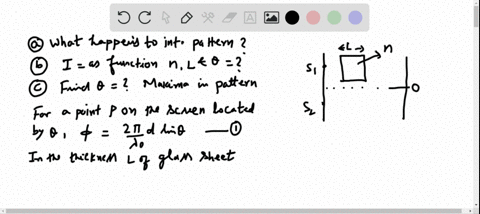 ⓐ What happens to int. pattern ?
ⓑ I = as function n, L & θ = ?
ⓒ Find θ = ? Maxima in pattern
For a point P on the screen located
by θ, ϕ = 2π/λ₀ d sinθ —— ①
In the thickness L of glass sheet
← L →
n
S₁
S₂
O